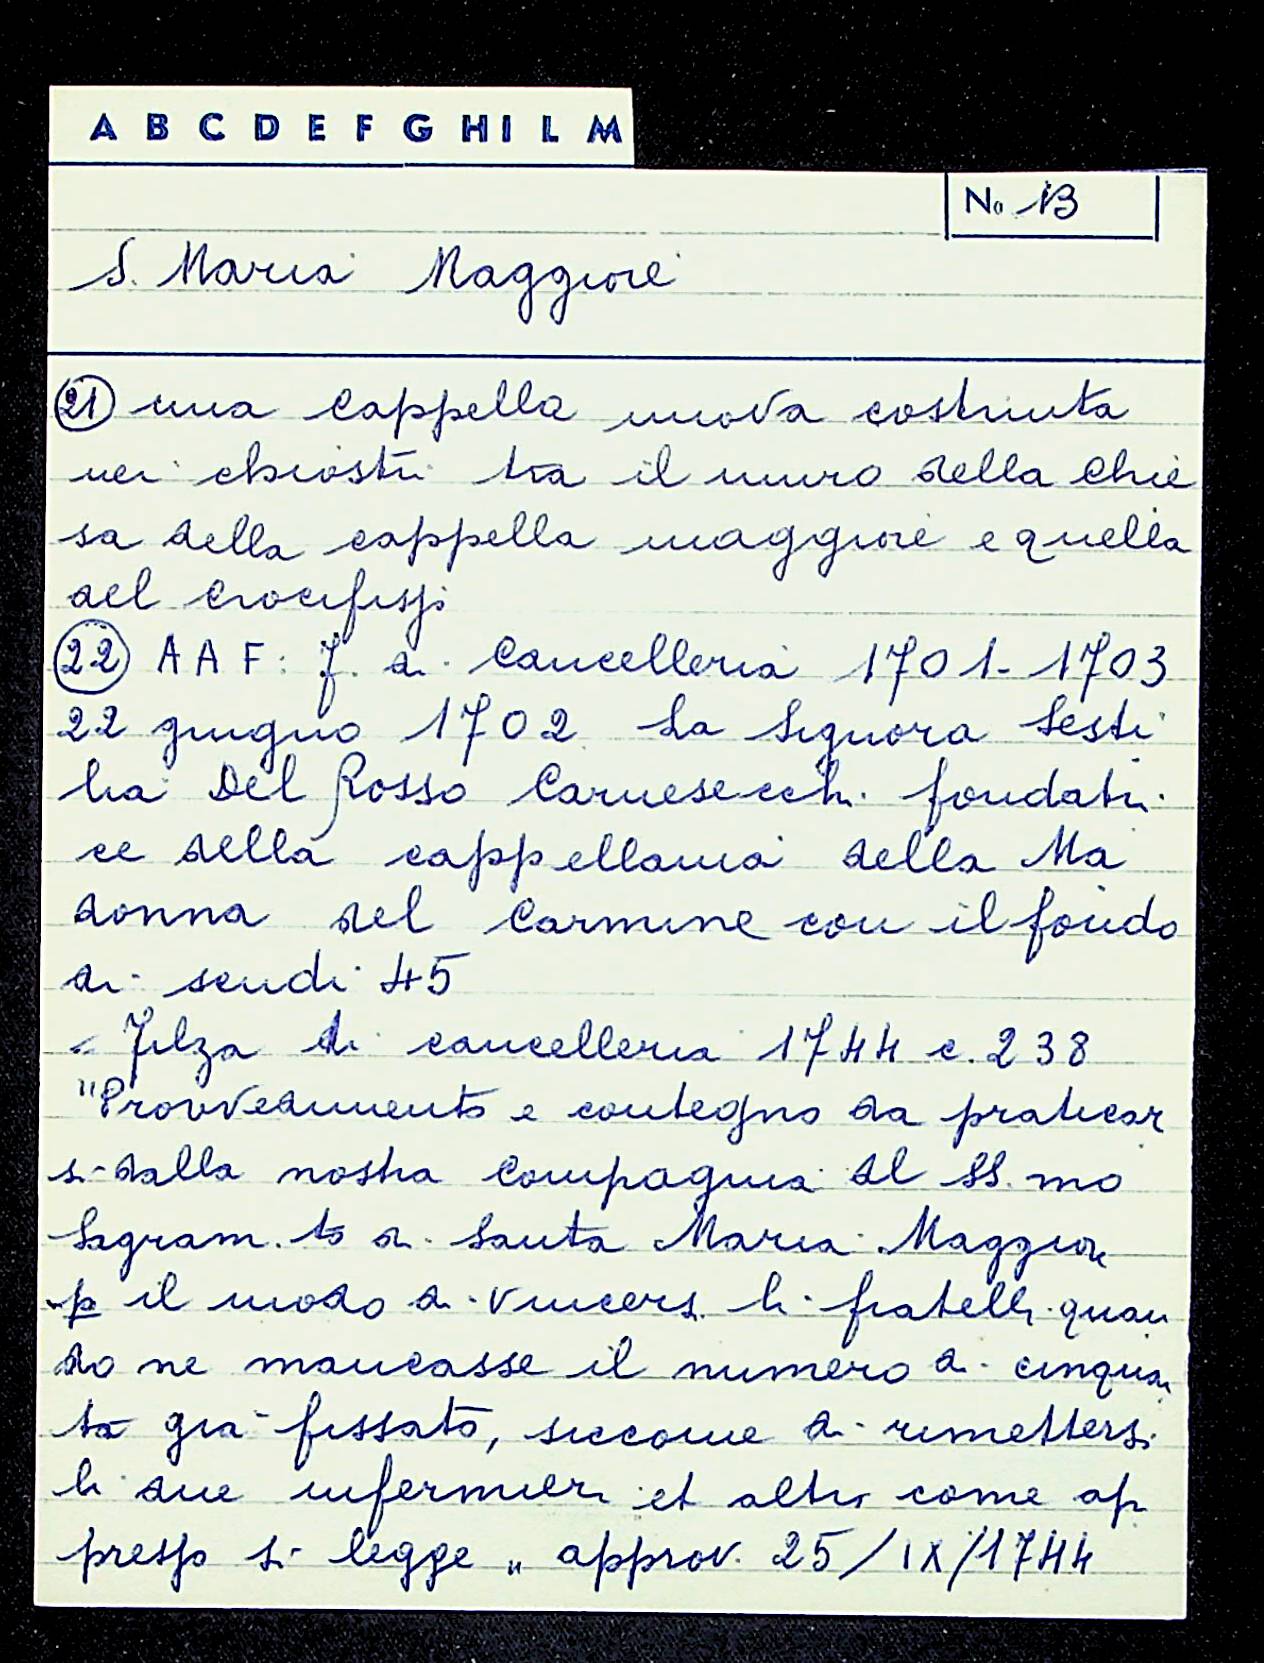 A B C D E F G H I L M
No 13
S. Maria Maggiore
(21) una cappella nuova costruita
nei chiostri tra il muro della Chie
sa della cappella maggiore e quella
del Crocifisso
(22) A A F: f. di Cancelleria 1701-1703
22 giugno 1702 La Signora Sesti
lia Del Rosso Carnesecchi fondatri
ce della cappellania della Ma
donna del Carmine con il fondo
di scudi 45
- Filza di cancelleria 1744 c. 238
"Provvedimento e contegno da praticar
si dalla nostra Compagnia del SS.mo
Sagram.to di Santa Maria Maggiore
p il modo di vincersi li fratelli quan
do ne mancasse il numero di cinquan
ta già fissato, siccome di rimettersi
li due infermieri et altri come ap
presso si legge" approv. 25/IX/1744